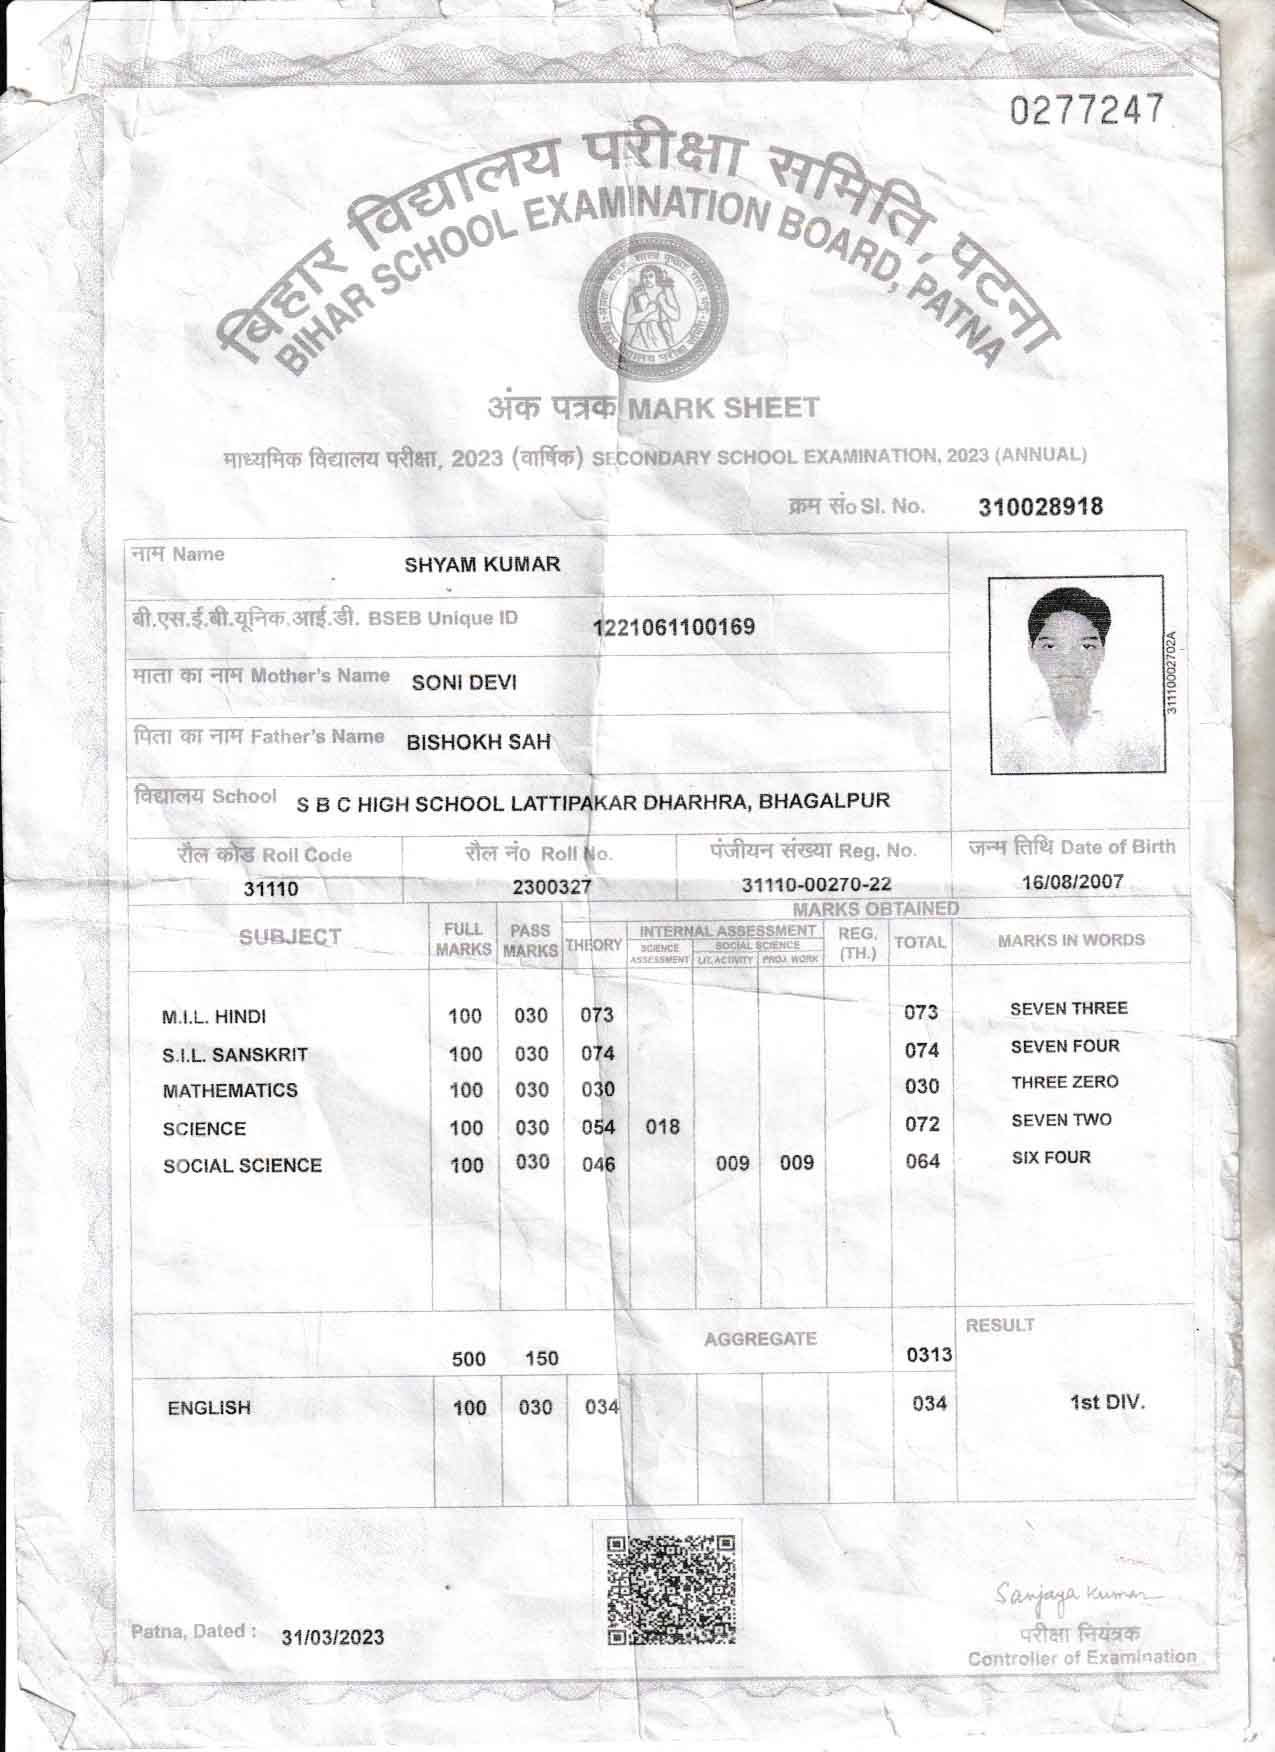 0277247
बिहार विद्यालय परीक्षा समिति, पटना
BIHAR SCHOOL EXAMINATION BOARD, PATNA
अंक पत्रक MARK SHEET
माध्यमिक विद्यालय परीक्षा, 2023 (वार्षिक) SECONDARY SCHOOL EXAMINATION, 2023 (ANNUAL)
क्रम सं० Sl. No. 310028918
नाम Name SHYAM KUMAR
बी.एस.ई.बी.यूनिक.आई.डी. BSEB Unique ID 1221061100169
माता का नाम Mother's Name SONI DEVI
31110002702A
पिता का नाम Father's Name BISHOKH SAH
विद्यालय School S B C HIGH SCHOOL LATTIPAKAR DHARHRA, BHAGALPUR
रौल कोड Roll Code रौल नं० Roll No. पंजीयन संख्या Reg. No. जन्म तिथि Date of Birth
31110 2300327 31110-00270-22 16/08/2007
MARKS OBTAINED
SUBJECT FULL MARKS PASS MARKS THEORY INTERNAL ASSESSMENT REG. (TH.) TOTAL MARKS IN WORDS
SCIENCE ASSESSMENT SOCIAL SCIENCE
LIT. ACTIVITY PROJ. WORK
M.I.L. HINDI 100 030 073 073 SEVEN THREE
S.I.L. SANSKRIT 100 030 074 074 SEVEN FOUR
MATHEMATICS 100 030 030 030 THREE ZERO
SCIENCE 100 030 054 018 072 SEVEN TWO
SOCIAL SCIENCE 100 030 046 009 009 064 SIX FOUR
AGGREGATE RESULT
500 150 0313
ENGLISH 100 030 034 034 1st DIV.
Sanjaya Kumar
Patna, Dated : 31/03/2023
परीक्षा नियंत्रक
Controller of Examination